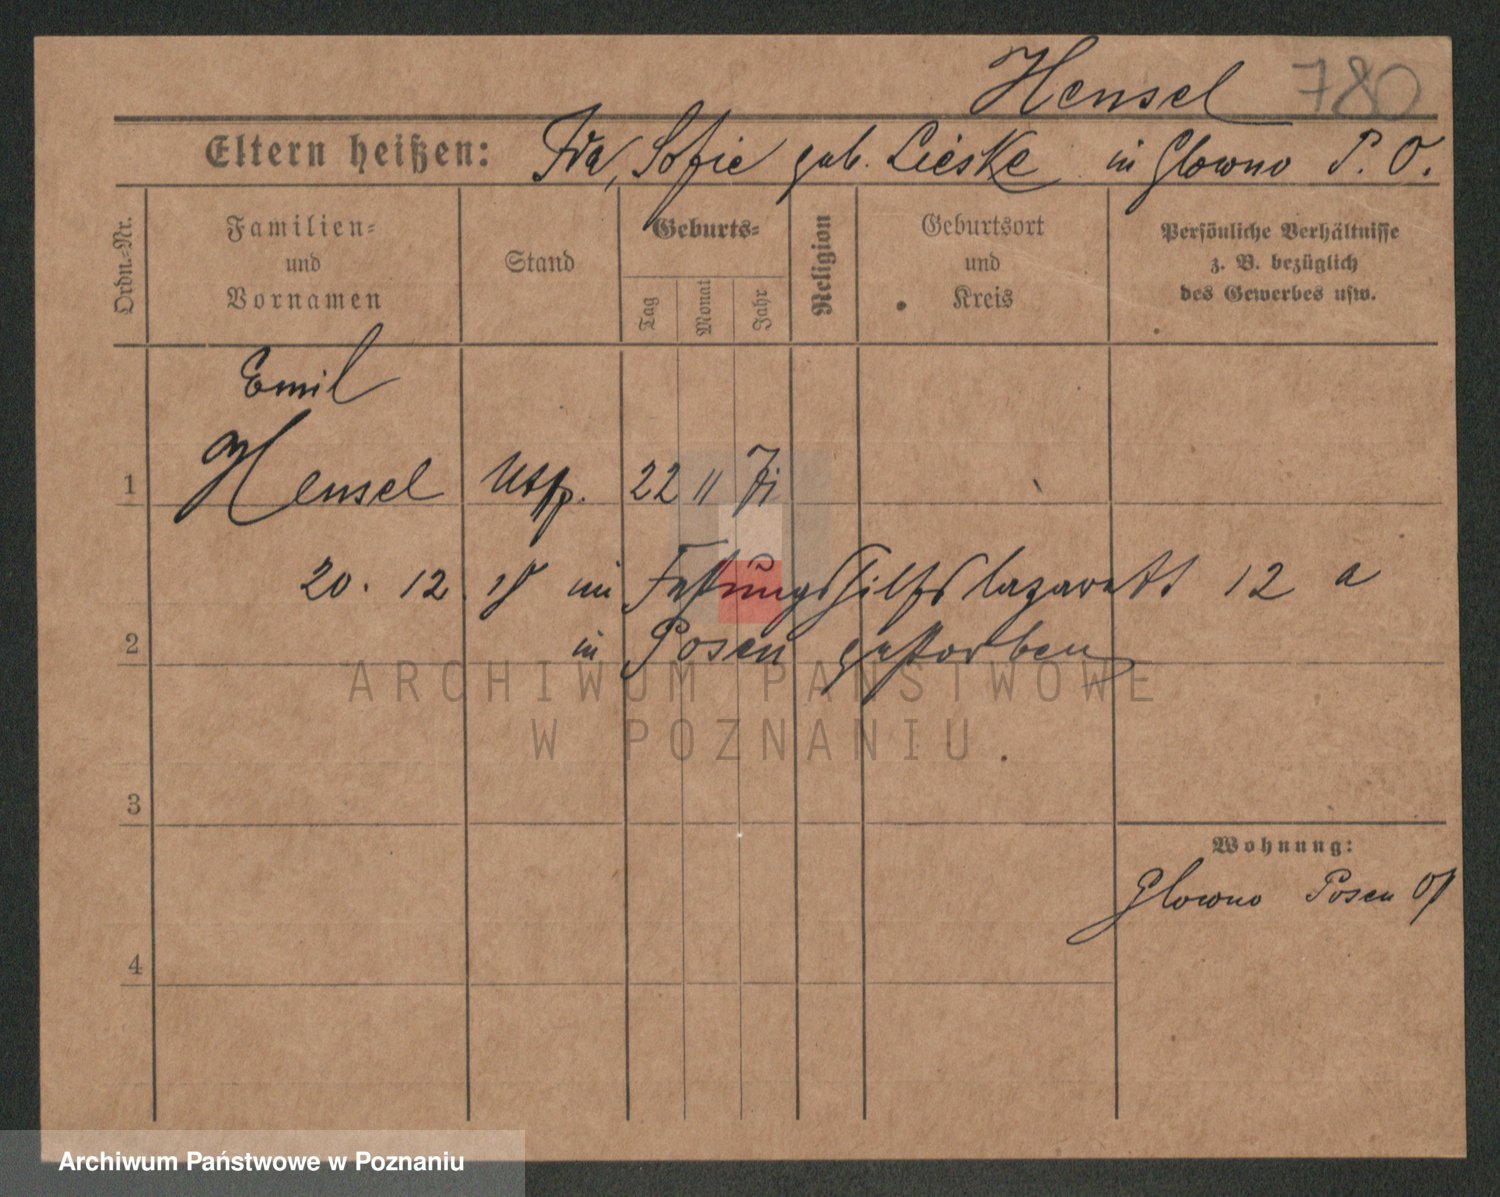 Hensel 780
Eltern heißen: Ida, Sofie geb. Lieske in Glowno P. O.
Ordn.-Nr.
Familien-
und
Vornamen
Stand
Geburts-
Tag
Monat
Jahr
Religion
Geburtsort
und
Kreis
Persönliche Verhältnisse
z. B. bezüglich
des Gewerbes usw.
Emil
1 Hensel 22 11
20. 12. 18 im Festungshilfslazarett 12 a
2 in Posen gestorben
3
4
Wohnung:
Glowno Posen
ARCHIWUM PAŃSTWOWE
W POZNANIU
Archiwum Państwowe w Poznaniu